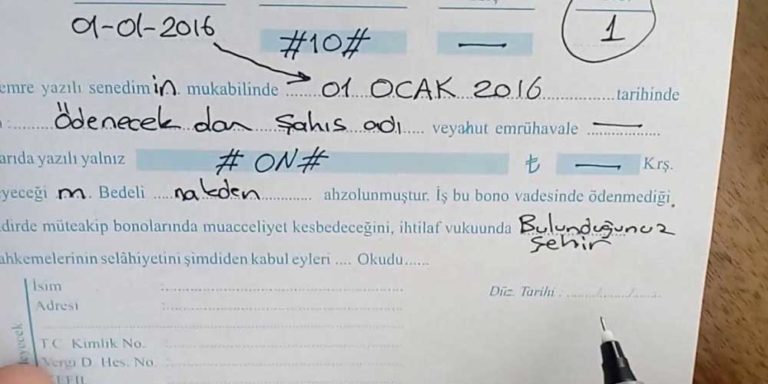 01-01-2016 #10# — 1
emre yazılı senedimin mukabilinde ...01 OCAK 2016... tarihinde
: Ödenecek olan Şahıs adı veyahut emrühavale —
arıda yazılı yalnız #ON# ₺ — Krş.
yeceği m. Bedeli ....nakden............ ahzolunmuştur. İş bu bono vadesinde ödenmediği
dirde müteakip bonolarında muacceliyet kesbedeceğini, ihtilaf vukuunda Bulunduğunuz
Şehir
ahkemelerinin selâhiyetini şimdiden kabul eyleri .... Okudu......
İsim :
Düz. Tarihi : ....../....../......
Adresi :
T.C. Kimlik No. :
Vergi D. Hes. No. :